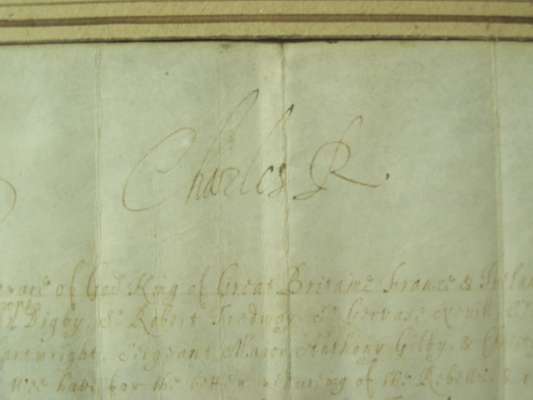 Charles R.
of God King of Great Britaine France & Irelan
Digby, Sr Robert Tredway, Sr Gervase
artwright, Sergeant Maior Anthony Gilby, &
wee have for the better of the Rebells &